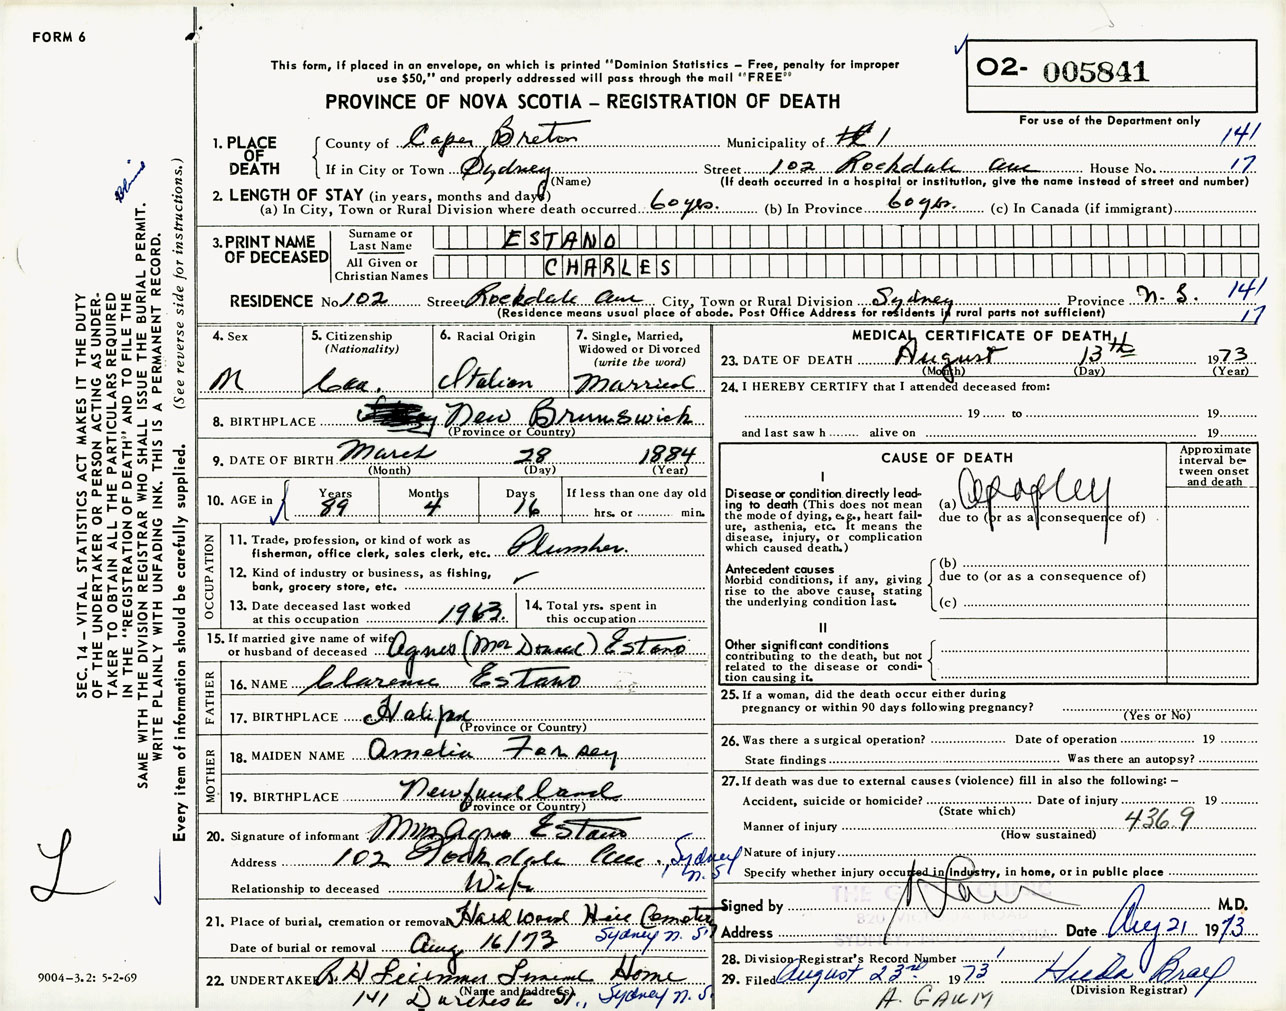 FORM 6
This form, if placed in an envelope, on which is printed "Dominion Statistics – Free, penalty for improper
use $50," and properly addressed will pass through the mail "FREE"
PROVINCE OF NOVA SCOTIA – REGISTRATION OF DEATH
O2- 005841
For use of the Department only
1. PLACE OF DEATH
County of Cape Breton Municipality of #1 141
If in City or Town Sydney (Name) Street 102 Rockdale Ave House No. 17
(If death occurred in a hospital or institution, give the name instead of street and number)
2. LENGTH OF STAY (in years, months and days)
(a) In City, Town or Rural Division where death occurred 60 yrs. (b) In Province 60 yrs. (c) In Canada (if immigrant)
3. PRINT NAME OF DECEASED
Surname or Last Name ESTANO
All Given or Christian Names CHARLES
RESIDENCE No. 102 Street Rockdale Ave City, Town or Rural Division Sydney Province N.S. 141
(Residence means usual place of abode. Post Office Address for residents in rural parts not sufficient) 17
4. Sex
M
5. Citizenship (Nationality)
Can.
6. Racial Origin
Italian
7. Single, Married, Widowed or Divorced (write the word)
Married
8. BIRTHPLACE New Brunswick
(Province or Country)
9. DATE OF BIRTH March 28 1884
(Month) (Day) (Year)
10. AGE in Years Months Days If less than one day old
89 4 16 hrs. or min.
OCCUPATION
11. Trade, profession, or kind of work as fisherman, office clerk, sales clerk, etc. Plumber.
12. Kind of industry or business, as fishing, bank, grocery store, etc. ✓
13. Date deceased last worked at this occupation 1963
14. Total yrs. spent in this occupation
15. If married give name of wife or husband of deceased Agnes (MacDonald) Estano
FATHER
16. NAME Clarence Estano
17. BIRTHPLACE Halifax
(Province or Country)
MOTHER
18. MAIDEN NAME Amelia Forsey
19. BIRTHPLACE Newfoundland
(Province or Country)
20. Signature of informant Mrs Agnes Estano
Address 102 Rockdale Ave., Sydney N.S
Relationship to deceased Wife
21. Place of burial, cremation or removal Hardwood Hill Cemetery
Sydney N.S.
Date of burial or removal Aug 16/73
22. UNDERTAKER Funeral Home
(Name and address)
141 Dorchester St., Sydney N.S.
MEDICAL CERTIFICATE OF DEATH
23. DATE OF DEATH August 13th 1973
(Month) (Day) (Year)
24. I HEREBY CERTIFY that I attended deceased from:
19 to 19
and last saw h alive on 19
CAUSE OF DEATH
Approximate interval between onset and death
I
Disease or condition directly leading to death (This does not mean the mode of dying, e.g., heart failure, asthenia, etc. It means the disease, injury, or complication which caused death.)
(a) Apoplexy
due to (or as a consequence of)
Antecedent causes
Morbid conditions, if any, giving rise to the above cause, stating the underlying condition last.
(b)
due to (or as a consequence of)
(c)
II
Other significant conditions
contributing to the death, but not related to the disease or condition causing it.
25. If a woman, did the death occur either during pregnancy or within 90 days following pregnancy?
(Yes or No)
26. Was there a surgical operation? Date of operation 19
State findings Was there an autopsy?
27. If death was due to external causes (violence) fill in also the following: –
Accident, suicide or homicide? Date of injury 19
(State which)
Manner of injury 436.9
(How sustained)
Nature of injury
Specify whether injury occurred in industry, in home, or in public place
Signed by M.D.
Address Date Aug 21 1973
28. Division Registrar's Record Number
29. Filed August 23rd 1973 Hilda
(Division Registrar)
A. GAUM
SEC. 14 – VITAL STATISTICS ACT MAKES IT THE DUTY
OF THE UNDERTAKER OR PERSON ACTING AS UNDER-
TAKER TO OBTAIN ALL THE PARTICULARS REQUIRED
IN THE "REGISTRATION OF DEATH" AND TO FILE THE
SAME WITH THE DIVISION REGISTRAR WHO SHALL ISSUE THE BURIAL PERMIT.
WRITE PLAINLY WITH UNFADING INK. THIS IS A PERMANENT RECORD.
Every item of information should be carefully supplied. (See reverse side for instructions.)
L
9004-3.2: 5-2-69